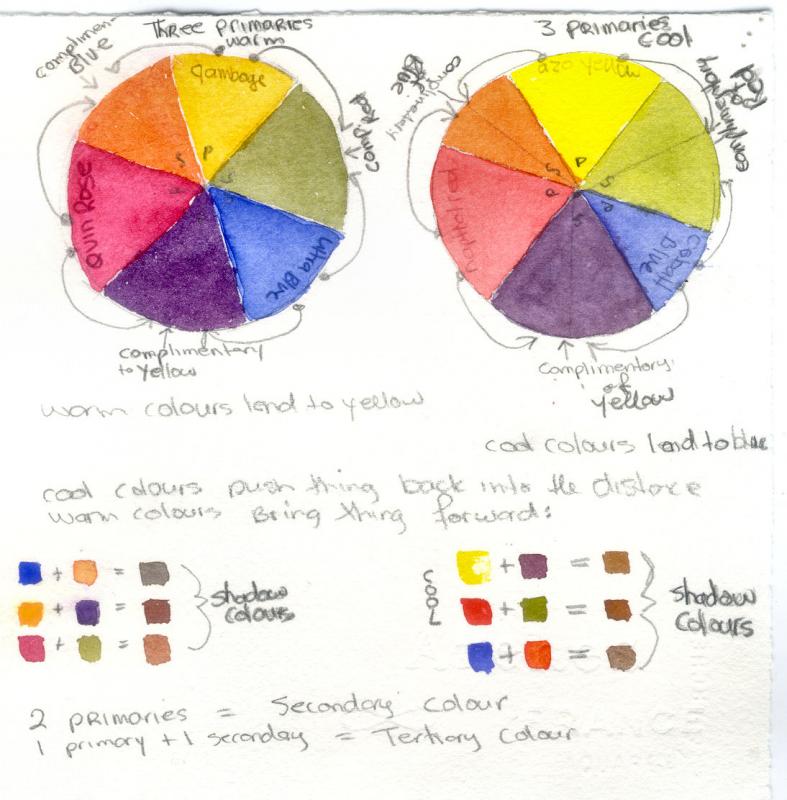 Three primaries
warm
complimen
Blue
Gambage
compli Red
S P
P S
Quin Rose
Ultra Blue
complimentary
to Yellow
3 primaries
cool
azo yellow
complimentary
Red
complimentary
Blue
S P S
P S P
napthol red
Cobalt
Blue
complimentary
of
yellow
warm colours lend to yellow
cool colours lend to blue
cool colours push thing back into the distance
warm colours Bring thing forward:
+ =
+ =
+ =
shadow
colours
cool
+ =
+ =
+ =
shadow
colours
2 primaries = Secondary colour
1 primary + 1 seconday = Tertiary colour